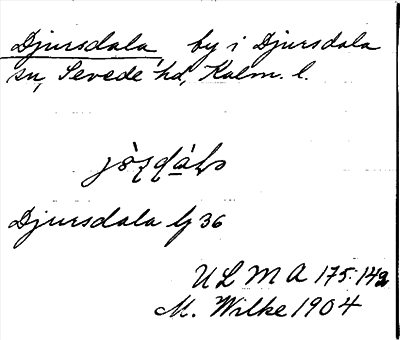 Djursdala, by i Djursdala
sn, Sevede hd, Kalm. l.
Djursdala lj 36
ULMA 175:142
M. Wilke 1904